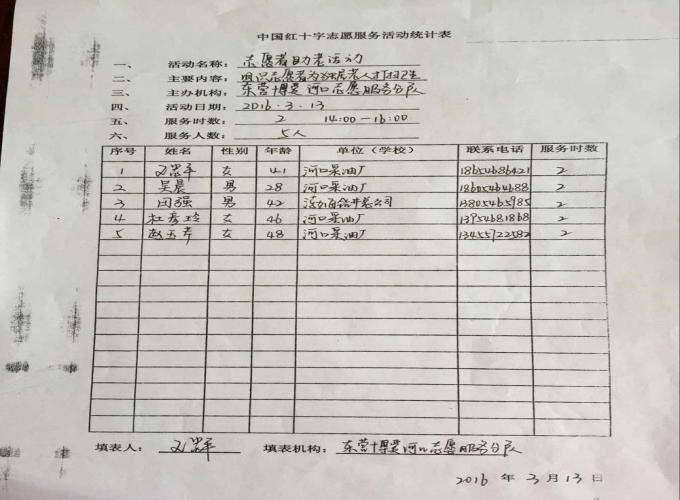 中国红十字志愿服务活动统计表
一、 活动名称: 志愿者助老活动
二、 主要内容: 组织志愿者为孤居老人打扫卫生
三、 主办机构: 东营博爱河口志愿服务分队
四 活动日期: 2016.3.13
五、 服务时数: 2 14:00-16:00
六、 服务人数: 5人
序号 姓名 性别 年龄 单位(学校) 联系电话 服务时数
1 女 41 河口采油厂 18654686421 2
2 吴晨 男 28 河口采油厂 2
3 闫强 男 42 公司 13805465985 2
4 杜秀玲 女 46 河口采油厂 13954681868 2
5 赵玉芹 女 48 河口采油厂 13455722582 2
填表人: 填表机构: 东营博爱河口志愿服务分队
2016 年 3 月 13 日